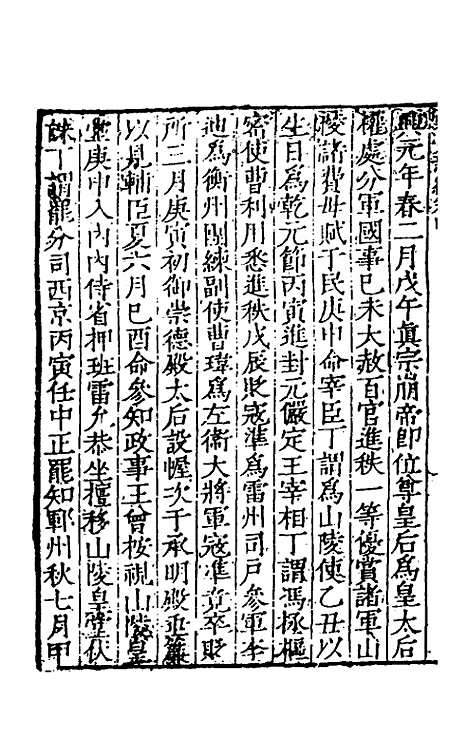 興元年春二月戊午眞宗崩帝卽位尊皇后爲皇太后
權處分軍國事已未大赦百官進秩一等優賞諸軍山
陵諸費毋賦于民庚申命宰臣丁謂爲山陵使乙丑以
生日爲乾元節丙寅進封元儼定王宰相丁謂馮拯樞
密使曹利用悉進秩戊辰貶寇準爲雷州司戸參軍李
迪爲衡州團練副使曹瑋爲左衛大將軍寇準竟卒貶
所三月庚寅初御崇德殿太后設幄次于承明殿垂簾
以見輔臣夏六月已酉命參知政事王曾按視山陵皇
堂庚申入內內侍省押班雷允恭坐擅移山陵皇堂伏
誅丁謂罷分司西京丙寅任中正罷知鄆州秋七月甲